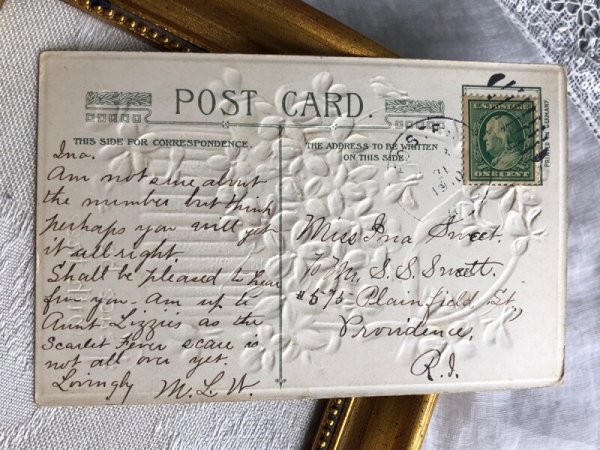 POST CARD.
THIS SIDE FOR CORRESPONDENCE.
THE ADDRESS TO BE WRITTEN
ON THIS SIDE.
U.S. POSTAGE
ONE CENT
PRINTED IN GERMANY
Ina.
Am not sure about
the number but think
perhaps you will get
it all right.
Shall be pleased to hear
from you - Am up to
Aunt Lizzies as the
Scarlet Fever scare is
not all over yet.
Lovingly M. L. W.
Miss Ina Sweet.
To Mr. S. S. Sweet.
#575- Plainfield St,
Providence,
R.I.